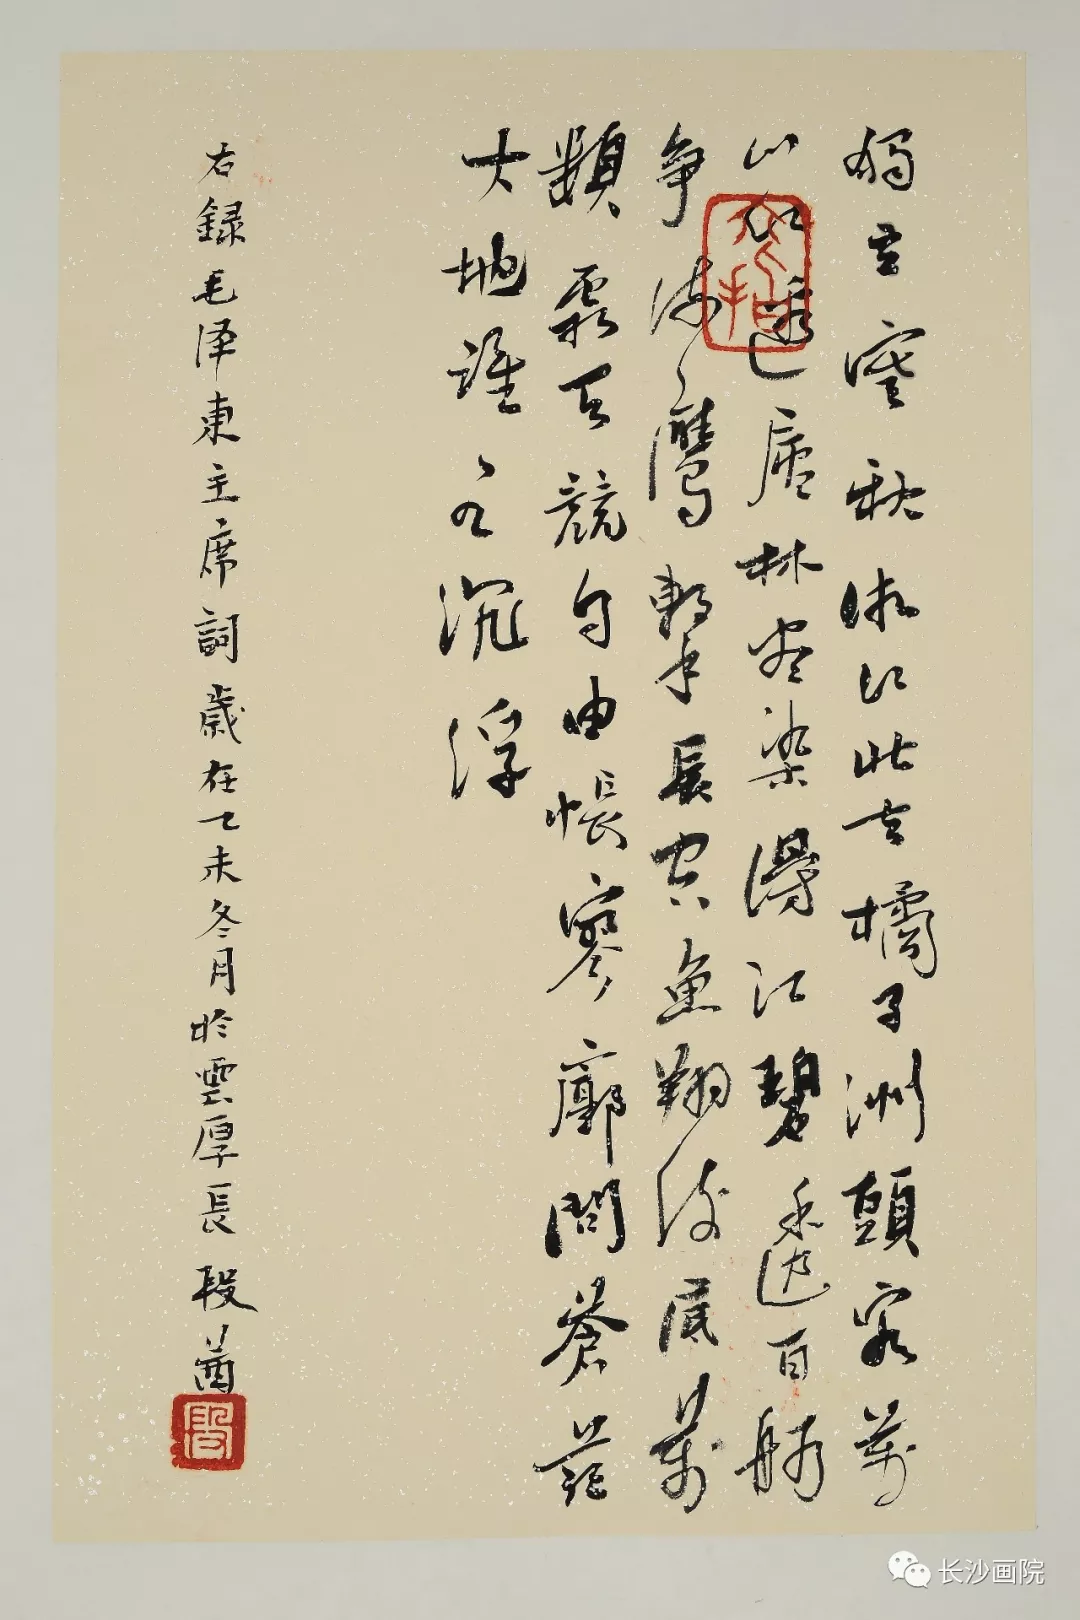 獨立寒秋湘江北去橘子洲頭看萬
山紅遍層林盡染漫江碧透百舸
爭流鷹擊長空魚翔淺底萬
類霜天競自由悵寥廓問蒼茫
大地誰主沉浮
右録毛泽東主席詞歲在乙未冬月於雲厚長段
长沙画院